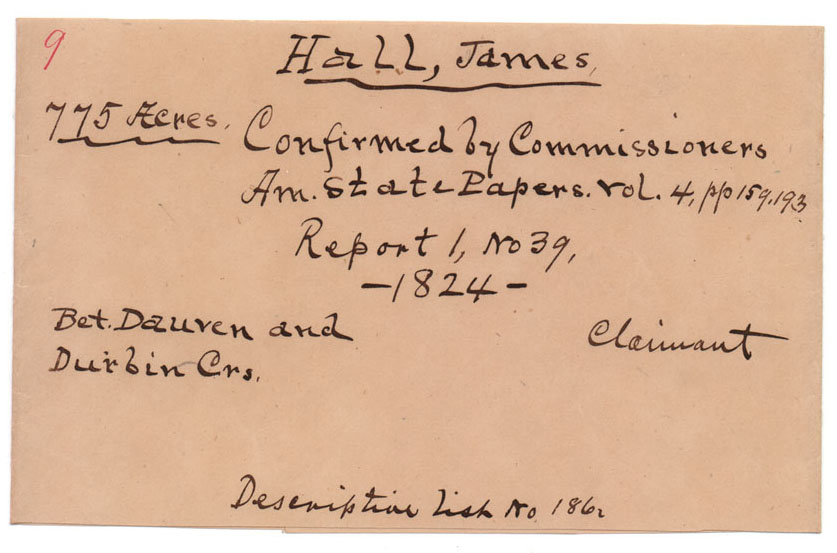 9
Hall, James.
775 Acres.
Confirmed by Commissioners
Am. State Papers. Vol. 4, pp 159, 193
Report 1, No 39,
-1824-
Bet. Dauven and
Durbin Crs.
Claimant
Descriptive List No.